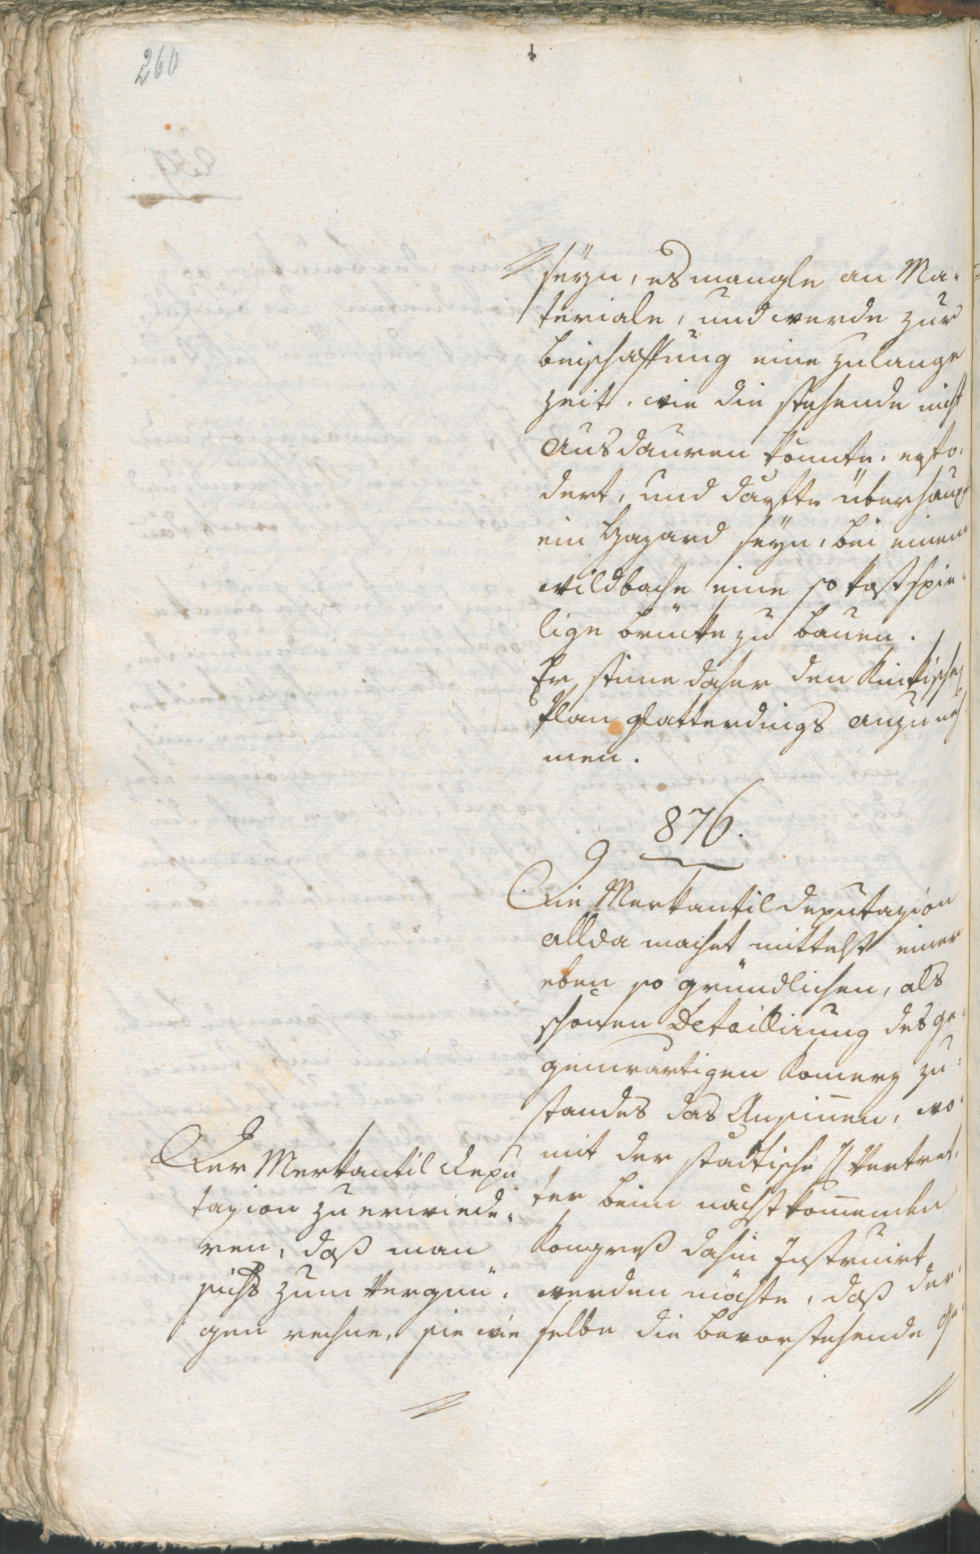 260
seÿn, es mangle an Ma-
teriale, und werde zur
beischaffung eine zulange
zeit, wie die stehende nicht
ausdauren könnte, erfo-
dert, und dürfte überhaupt
ein Hazard seÿn, bei einem
wildbache eine so kostspie-
lige brücke zu bauen.
Er stime daher den Kinkische
Plan glatterdings anzuneh
men.
876.
Die Merkantildeputazion
allda machet mittelst einer
eben so gründlichen, als
schönen Detaillirung des ge-
genwärtigen Komerz zu-
standes das Ansinnen, wo-
mit der stadtische Vertret-
ter beim nächstkommenden
Kongreß dahin Instruirt
werden möchte, daß der-
selbe die bevorstehende
Der Merkantil Depu
tazion zu erwiede-
ren, daß man
sichs zum Vergnü-
gen rechne, sie wie